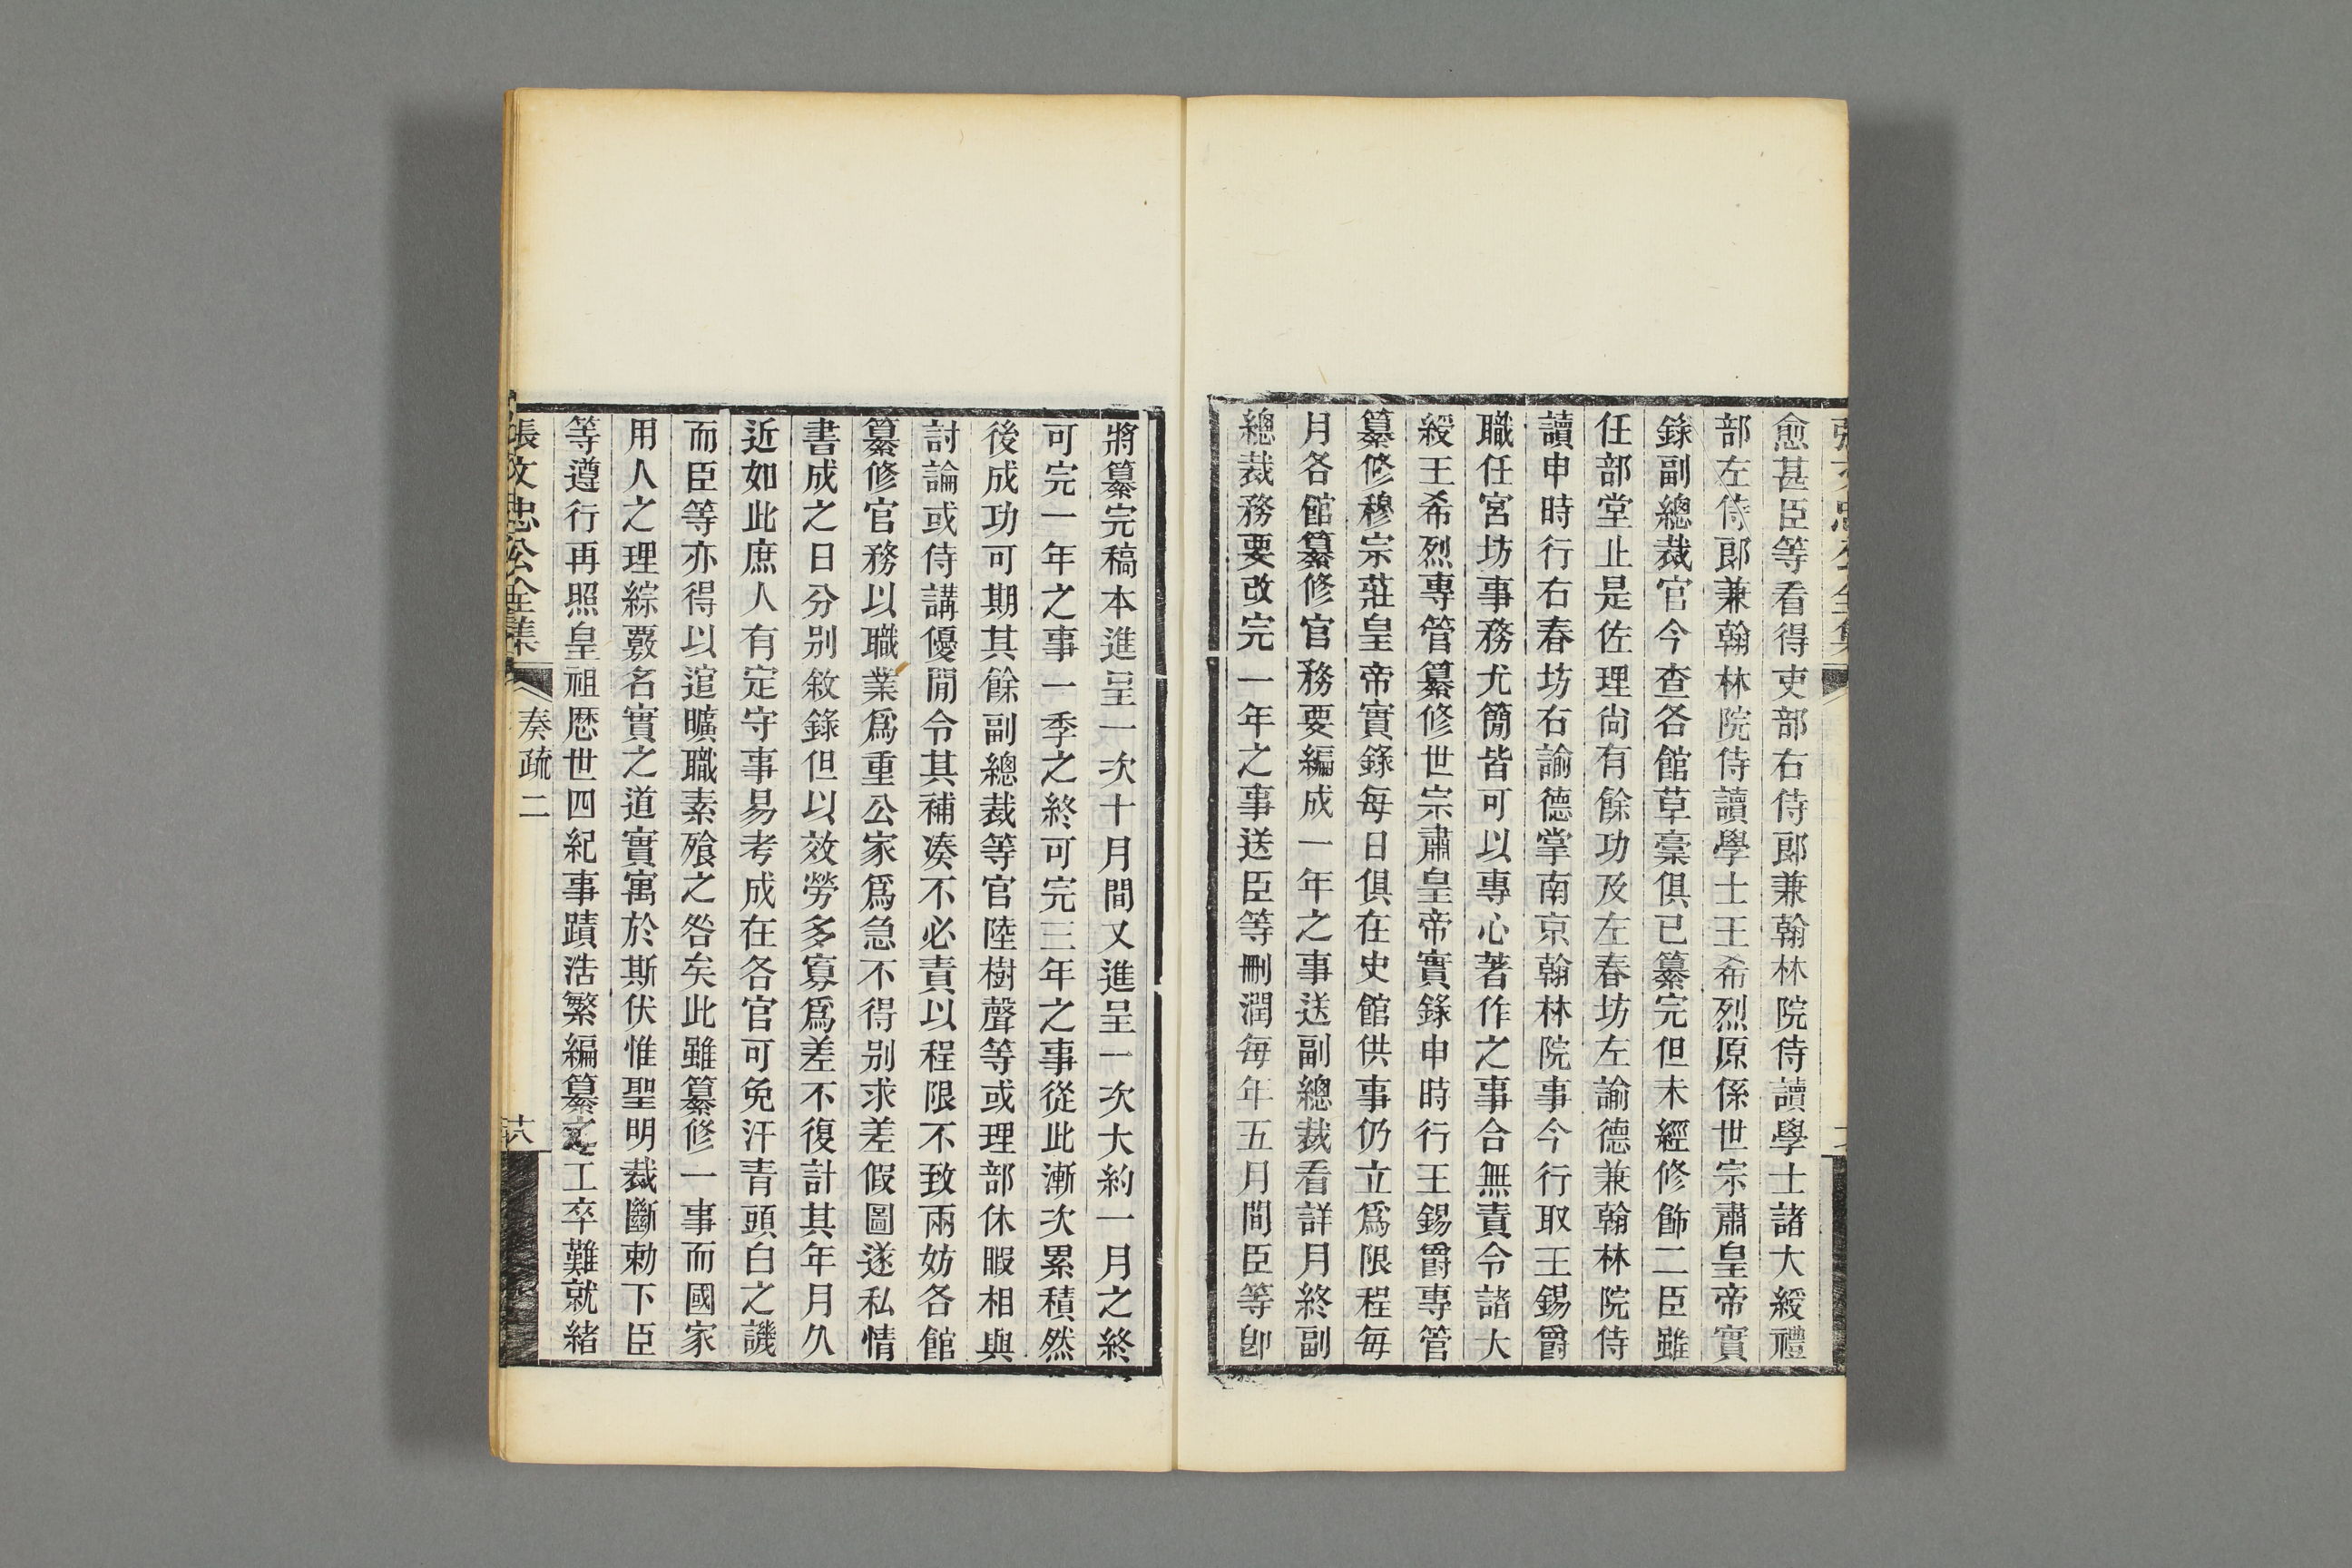 愈甚臣等看得吏部右侍郎兼翰林院侍讀學士諸大綬禮
部左侍郎兼翰林院侍讀學士王希烈原係世宗肅皇帝實
錄副總裁官今查各館草藁俱已纂完但未經修飾二臣雖
任部堂止是佐理尙有餘功及左春坊左諭德兼翰林院侍
讀申時行右春坊右諭德掌南京翰林院事今行取王錫爵
職任宮坊事務尤簡皆可以專心著作之事合無責令諸大
綬王希烈專管纂修世宗肅皇帝實錄申時行王錫爵專管
纂修穆宗莊皇帝實錄每日俱在史館供事仍立爲限程每
月各館纂修官務要編成一年之事送副總裁看詳月終副
總裁務要改完一年之事送臣等刪潤每年五月間臣等卽
將纂完稿本進呈一次十月間又進呈一次大約一月之終
可完一年之事一季之終可完三年之事從此漸次累積然
後成功可期其餘副總裁等官陸樹聲等或理部休暇相與
討論或侍講優閒令其補湊不必責以程限不致兩妨各館
纂修官務以職業爲重公家爲急不得别求差假圖遂私情
書成之日分别敘錄但以效勞多寡爲差不復計其年月久
近如此庶人有定守事易考成在各官可免汗青頭白之譏
而臣等亦得以逭曠職素飱之咎矣此雖纂修一事而國家
用人之理綜覈名實之道實寓於斯伏惟聖明裁斷勅下臣
等遵行再照皇祖歷世四紀事蹟浩繁編纂之工卒難就緒
張文忠公全集 奏疏二 十八